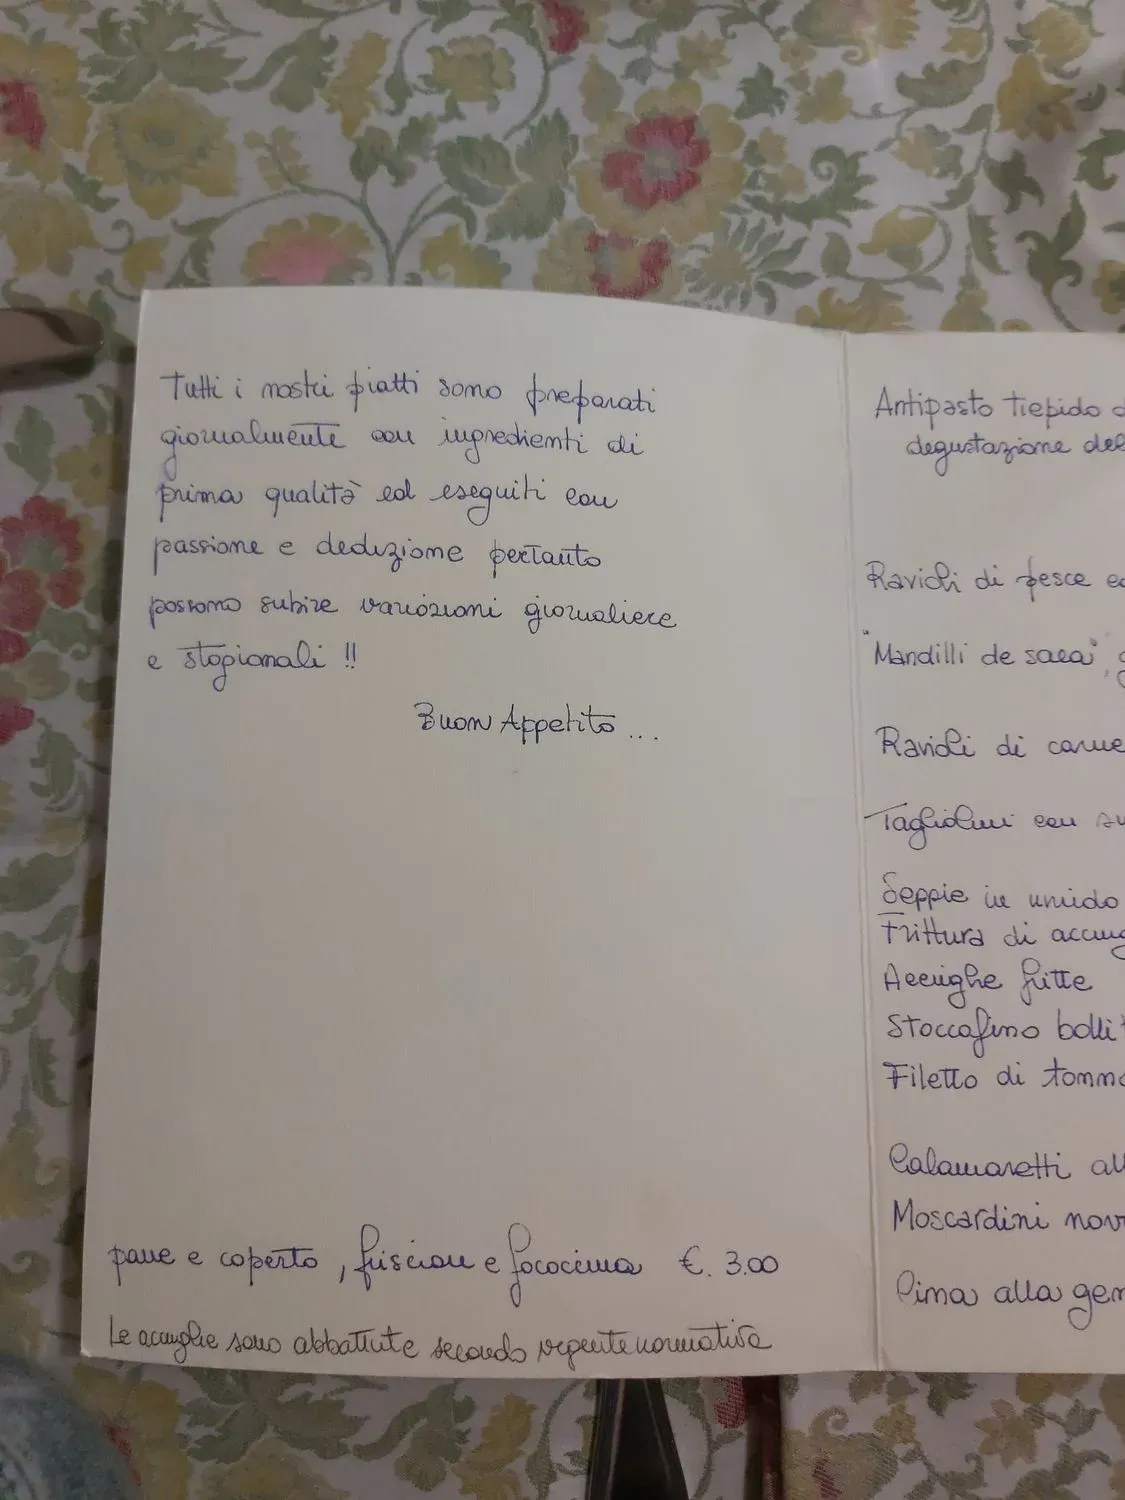 Tutti i nostri piatti sono preparati
giornalmente con ingredienti di
prima qualità ed eseguiti con
passione e dedizione pertanto
possono subire variazioni giornaliere
e stagionali !!
Buon Appetito ...
pane e coperto, friscieu e fococcina €. 3.00
Le acciughe sono abbattute secondo vigente normativa
Antipasto tiepido d
degustazione del
Ravioli di pesce
"Mandilli de saea"
Ravioli di carne
Tagliolini con su
Seppie in umido
Frittura di acciug
Acciughe fritte
Stoccafisso bollit
Filetto di tonno
Calamaretti all
Moscardini nov
Cima alla gen